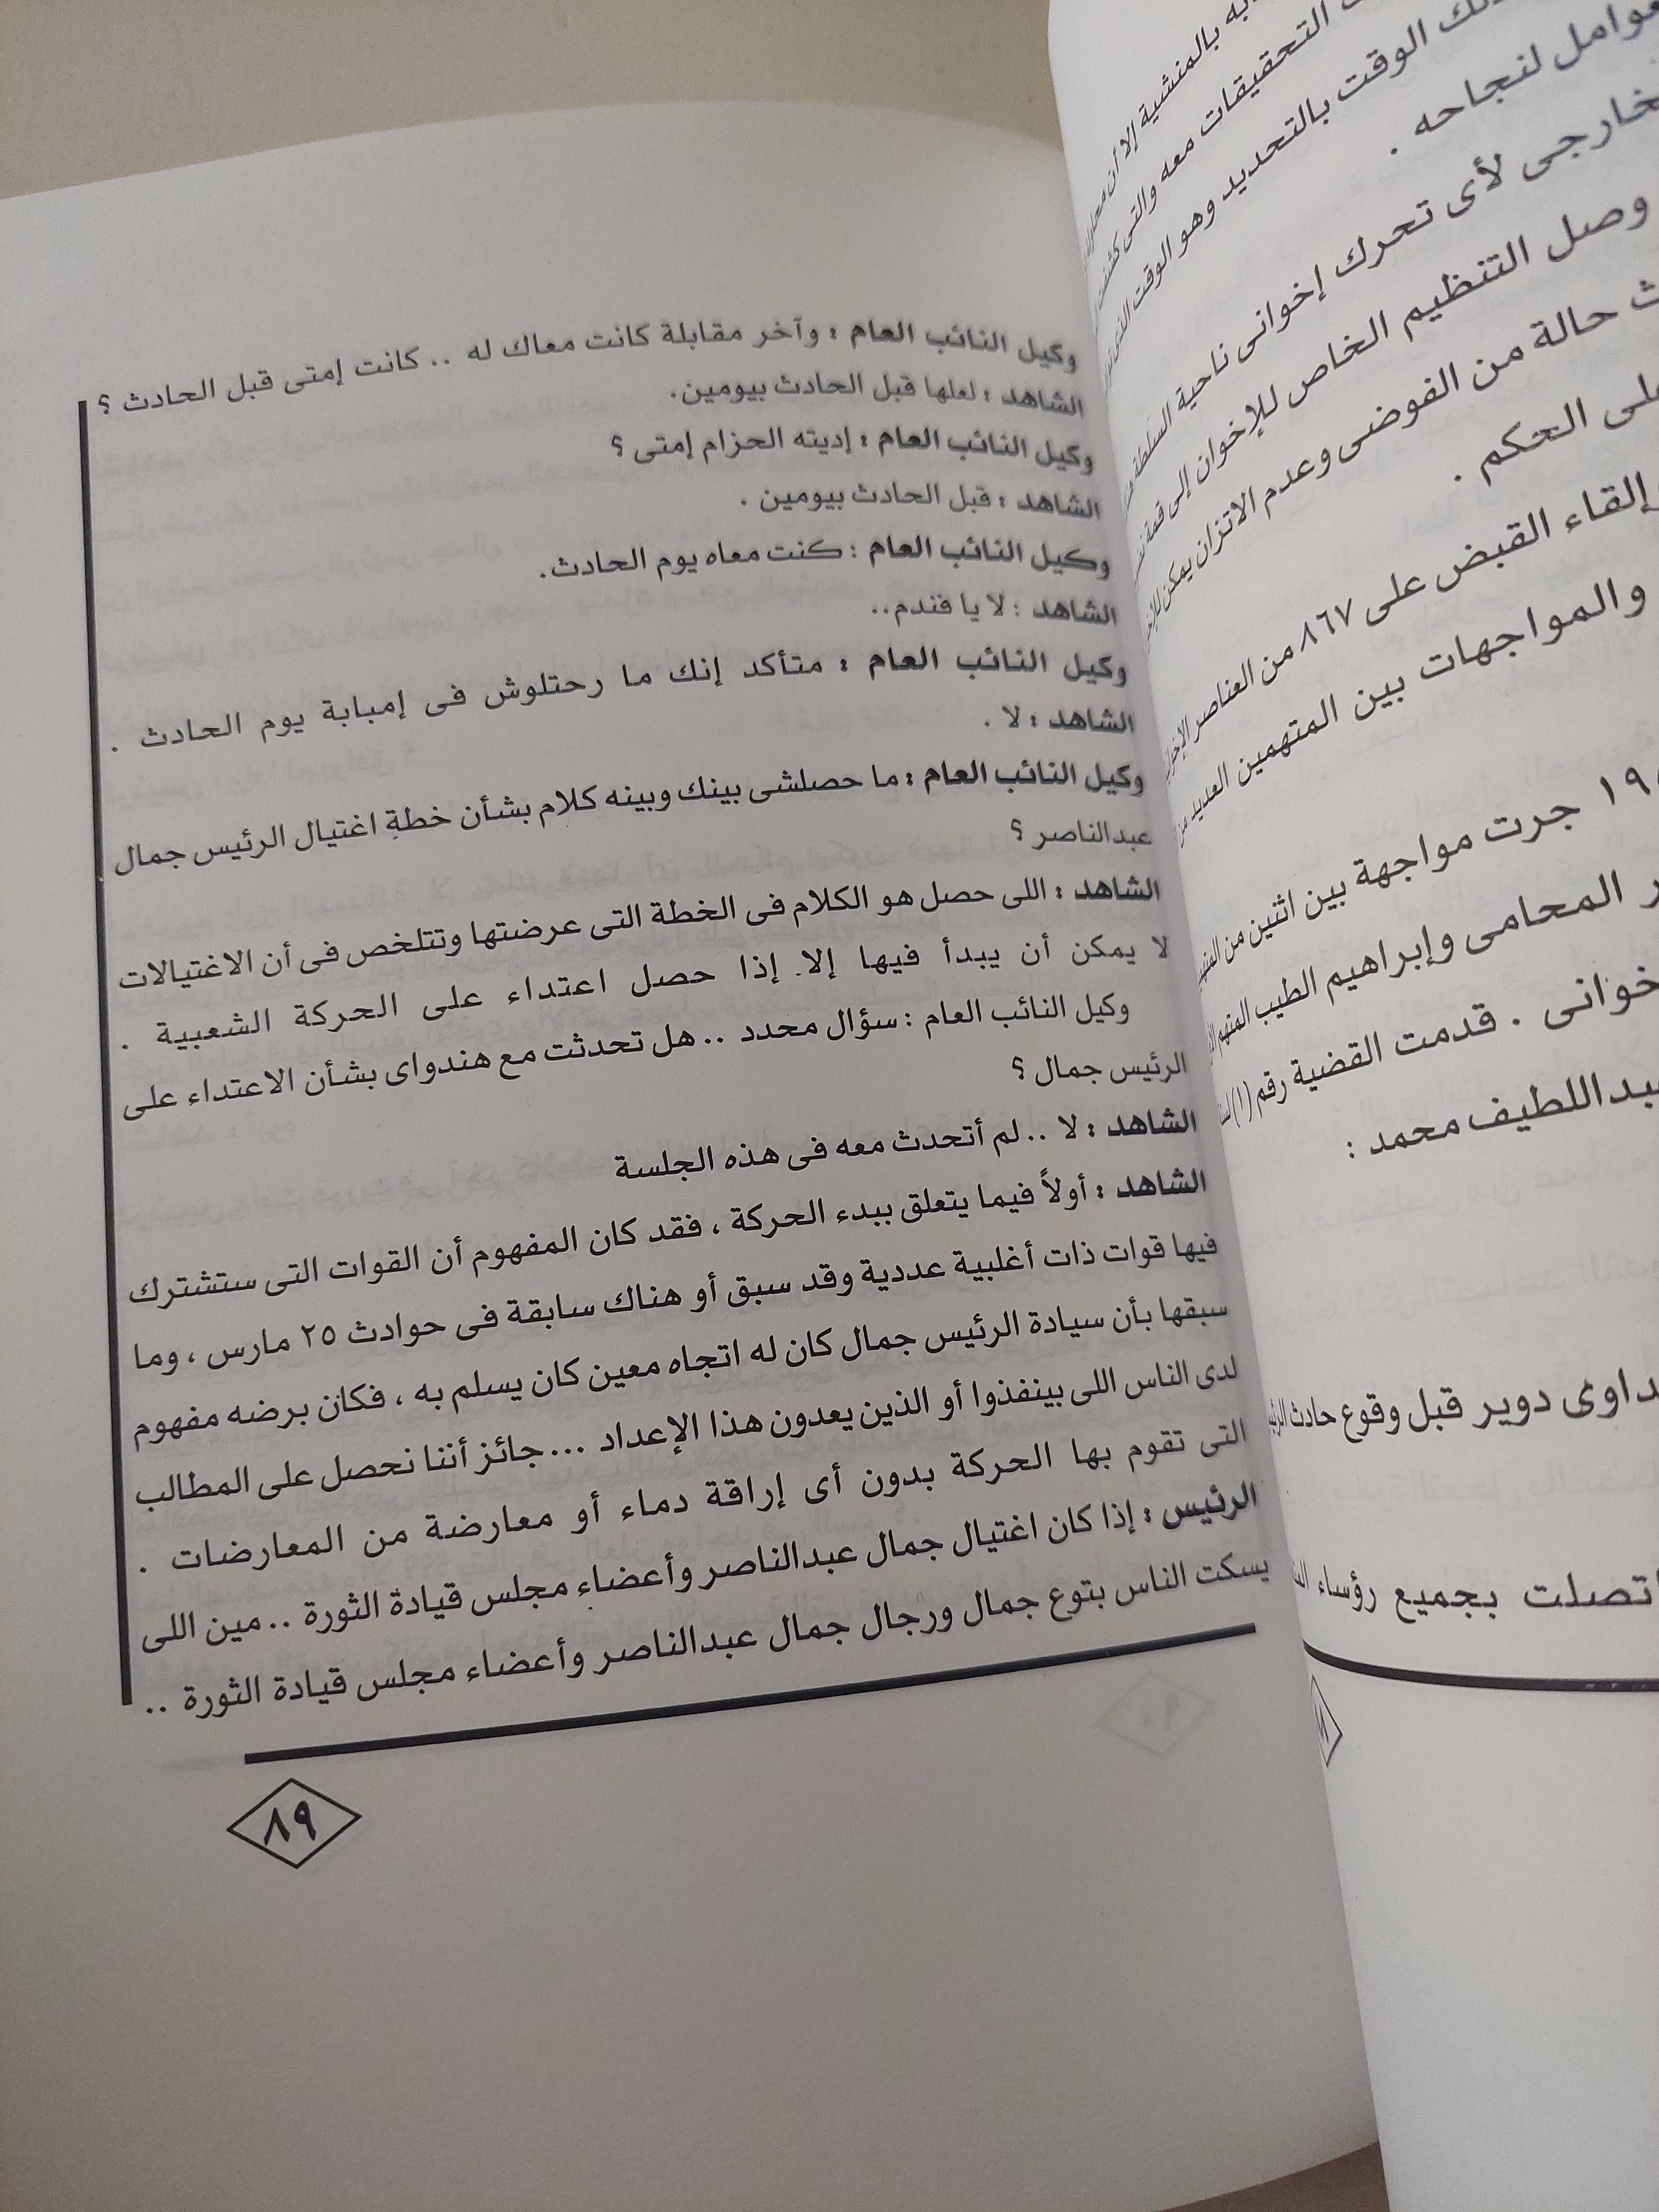 به بالمنشية إلا أن
التحقيقات معه والتى كشفت
الوقت بالتحديد وهو الوقت الذى
عوامل لنجاحه .
خارجى لأى تحرك إخوانى ناحية السلطة
وصل التنظيم الخاص للإخوان إلى قمة
حالة من الفوضى وعدم الاتزان يمكن
على الحكم .
إلقاء القبض على ٨٦٧ من العناصر
والمواجهات بين المتهمين العديد من
جرت مواجهة بين اثنين من
المحامى وإبراهيم الطيب المتهم
خوانى . قدمت القضية رقم (١)
عبداللطيف محمد :
داوى دوير قبل وقوع حادث
اتصلت بجميع رؤساء
وكيل النائب العام : وآخر مقابلة كانت معاك له .. كانت إمتى قبل الحادث ؟
الشاهد : لعلها قبل الحادث بيومين.
وكيل النائب العام : إديته الحزام إمتى ؟
الشاهد : قبل الحادث بيومين .
وكيل النائب العام : كنت معاه يوم الحادث.
الشاهد : لا يا فندم..
وكيل النائب العام : متأكد إنك ما رحتلوش فى إمبابة يوم الحادث .
الشاهد : لا .
وكيل النائب العام : ما حصلشى بينك وبينه كلام بشأن خطة اغتيال الرئيس جمال
عبدالناصر ؟
الشاهد : اللى حصل هو الكلام فى الخطة التى عرضتها وتتلخص فى أن الاغتيالات
لا يمكن أن يبدأ فيها إلا إذا حصل اعتداء على الحركة الشعبية .
وكيل النائب العام : سؤال محدد .. هل تحدثت مع هندواى بشأن الاعتداء على
الرئيس جمال ؟
الشاهد : لا .. لم أتحدث معه فى هذه الجلسة
الشاهد : أولاً فيما يتعلق ببدء الحركة ، فقد كان المفهوم أن القوات التى ستشترك
فيها قوات ذات أغلبية عددية وقد سبق أو هناك سابقة فى حوادث ٢٥ مارس ، وما
سبقها بأن سيادة الرئيس جمال كان له اتجاه معين كان يسلم به ، فكان برضه مفهوم
لدى الناس اللى بينفذوا أو الذين يعدون هذا الإعداد ... جائز أننا نحصل على المطالب
التى تقوم بها الحركة بدون أى إراقة دماء أو معارضة من المعارضات .
الرئيس : إذا كان اغتيال جمال عبدالناصر وأعضاء مجلس قيادة الثورة .. مين اللى
يسكت الناس بتوع جمال ورجال جمال عبدالناصر وأعضاء مجلس قيادة الثورة ..
٨٩